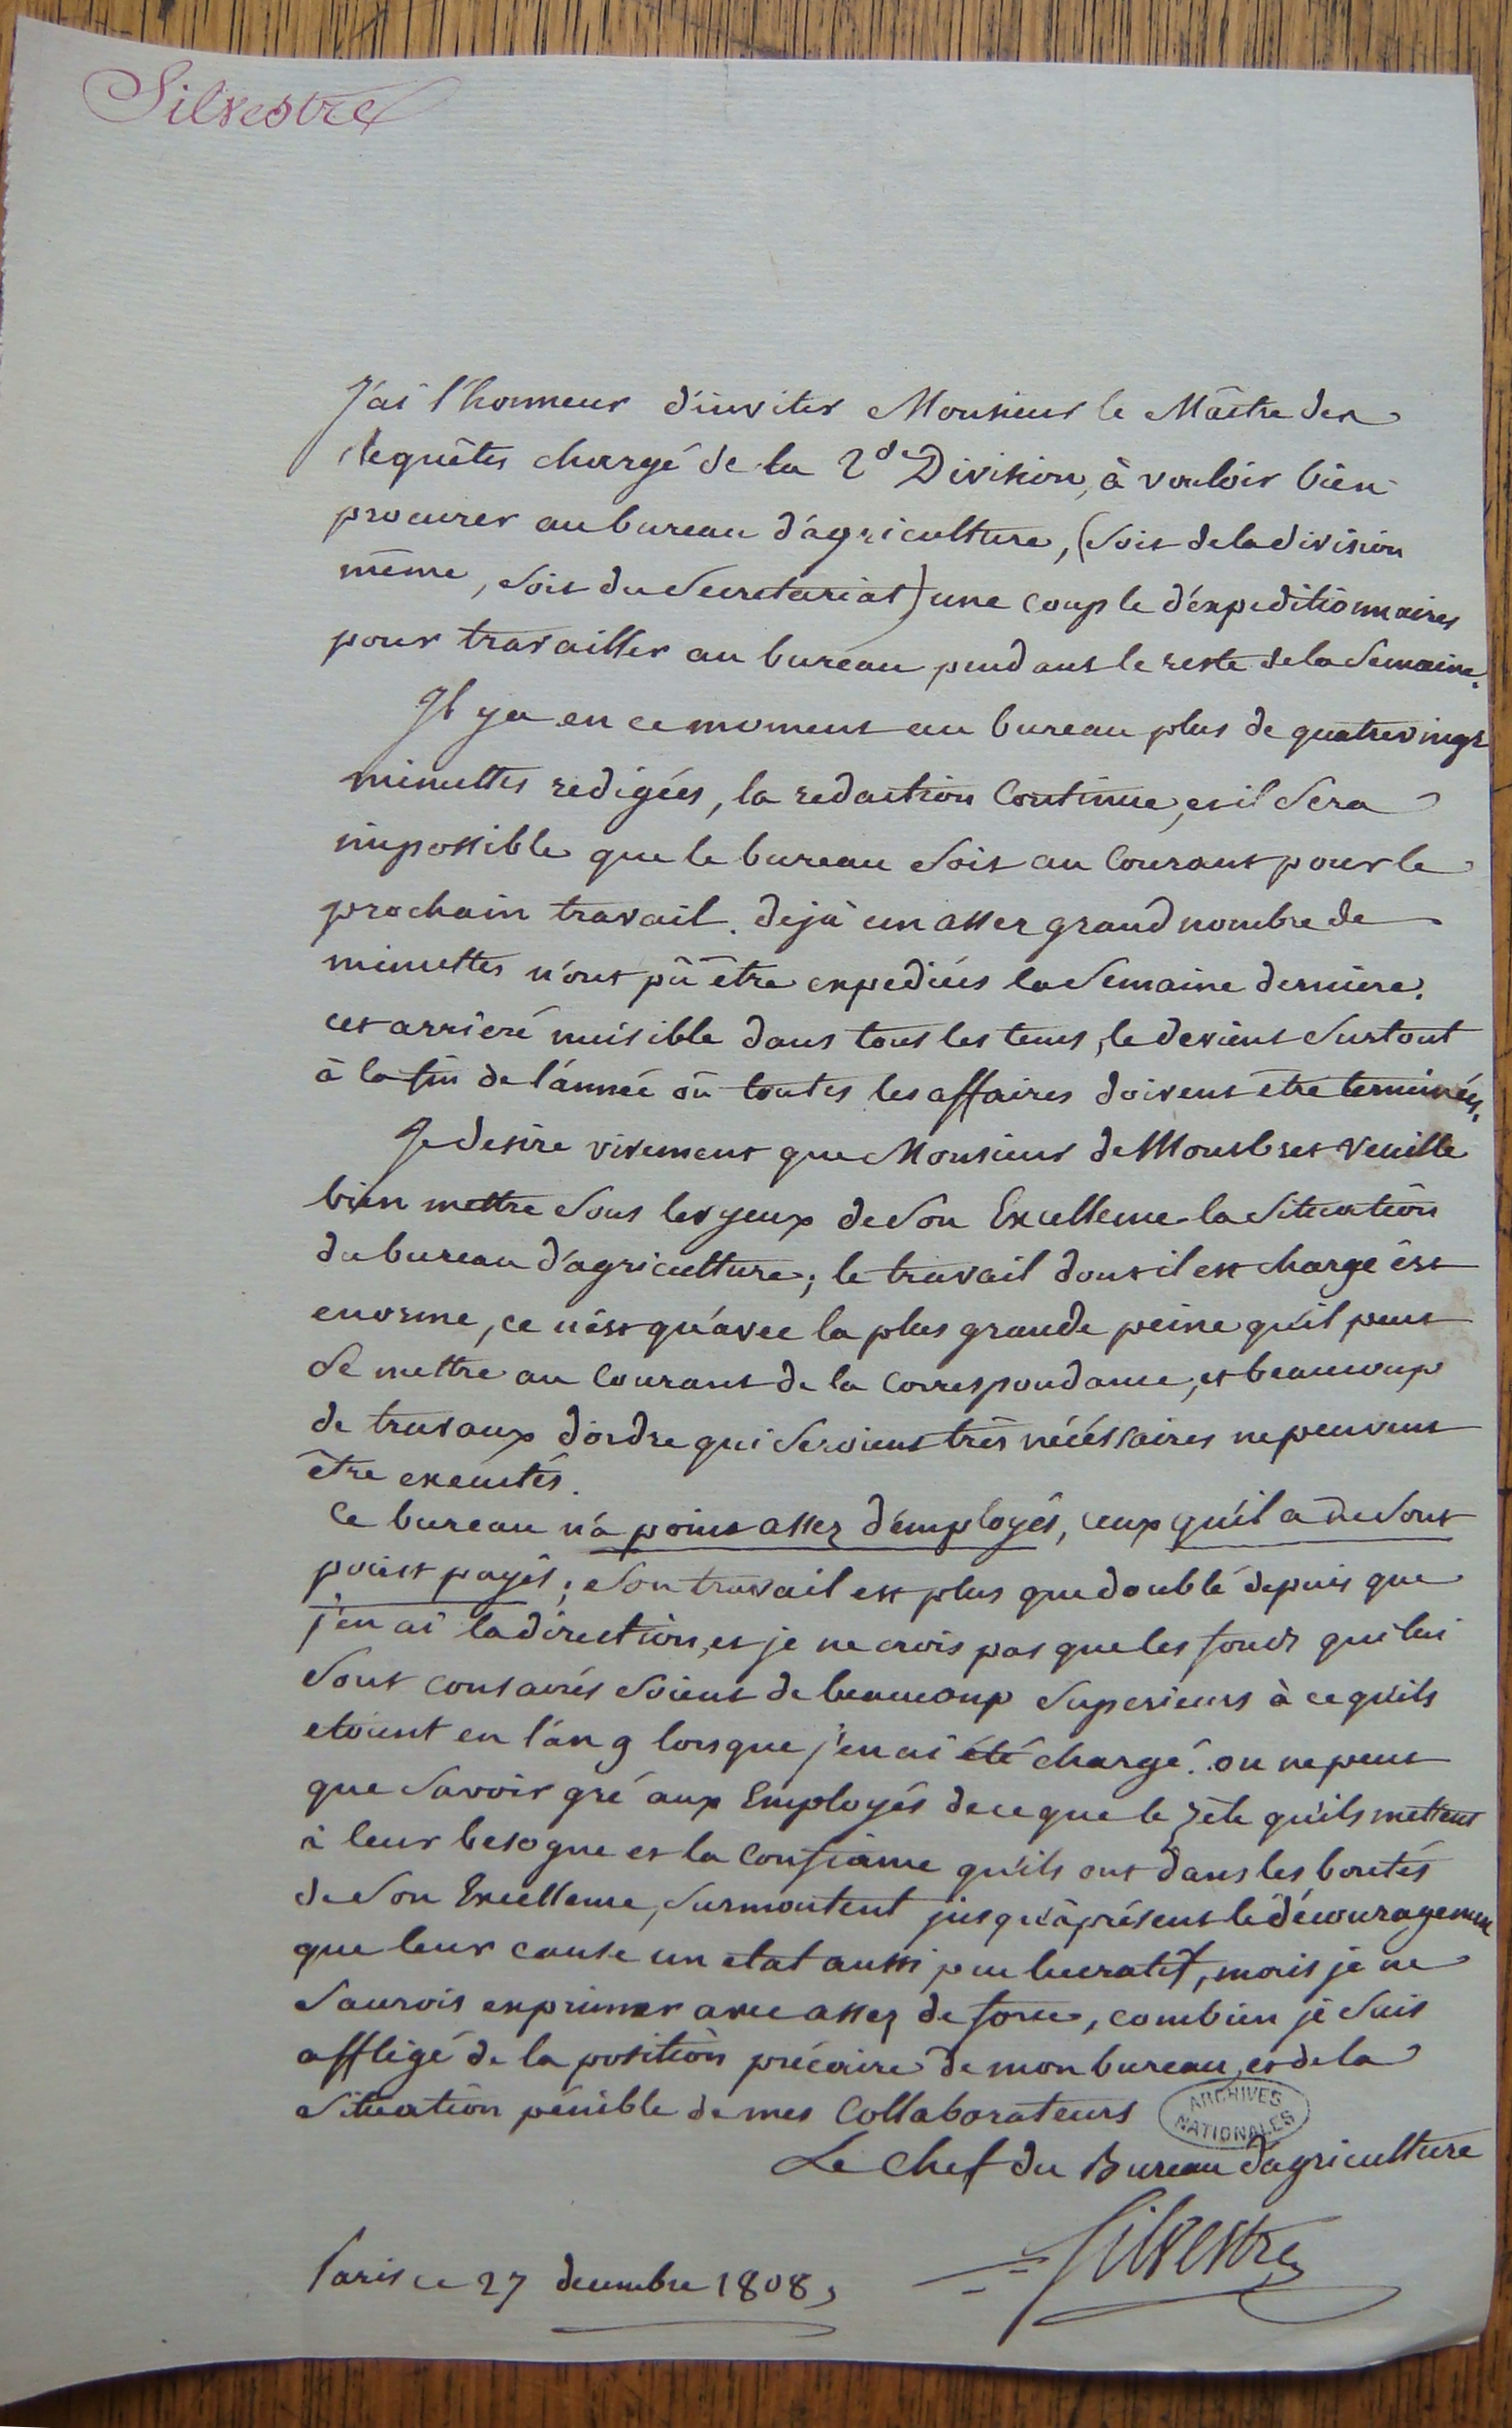 Silvestre
J'ai l'honneur d'inviter Monsieur le Maître des
Requêtes chargé de la 2de Division, à vouloir bien
procurer au bureau d'agriculture, (soit de la division
même, soit du Secretariat) une couple d'expeditionnaires
pour travailler au bureau pendant le reste de la Semaine.
Il y a en ce moment au bureau plus de quatrevingt
minuttes redigées, la redaction Continue, et il Sera
impossible que le bureau soit au Courant pour le
prochain travail. deja un assez grand nombre de
minuttes n'ont pû être expediées la Semaine derniere.
cet arrieré nuisible dans tous les tems, le devient Surtout
à la fin de l'année où toutes les affaires doivent être terminées.
Je desire vivement que Monsieur de Montbret veuille
bien mettre Sous les yeux de Son Excellence la Situation
du bureau d'agriculture; le travail dont il est chargé est
enorme, ce n'est qu'avec la plus grande peine qu'il peut
Se mettre au Courant de la Correspondance, et beaucoup
de travaux d'ordre qui Seroient très nécéssaires ne peuvent
être executés.
Ce bureau n'a point assez d'employés, ceux qu'il a ne Sont
point payés; Son travail est plus que doublé depuis que
j'en ai la direction, et je ne crois pas que les fonds qui lui
Sont consacrés Soient de beaucoup Superieurs à ce qu'ils
etoient en l'an 9 lorsque j'en ai été chargé. on ne peut
que Savoir gré aux Employés de ce que le zèle qu'ils mettent
à leur besogne et la Confiance qu'ils ont dans les bontés
de Son Excellence, Surmontent jusqu'à présent le découragement
que leur cause un etat aussi peu lucratif, mais je ne
Saurois exprimer avec assez de force, combien je Suis
affligé de la position précaire de mon bureau, et de la
Situation pénible de mes Collaborateurs
ARCHIVES
NATIONALES
Le Chef du Bureau d'agriculture
Silvestre
Paris ce 27 decembre 1808,